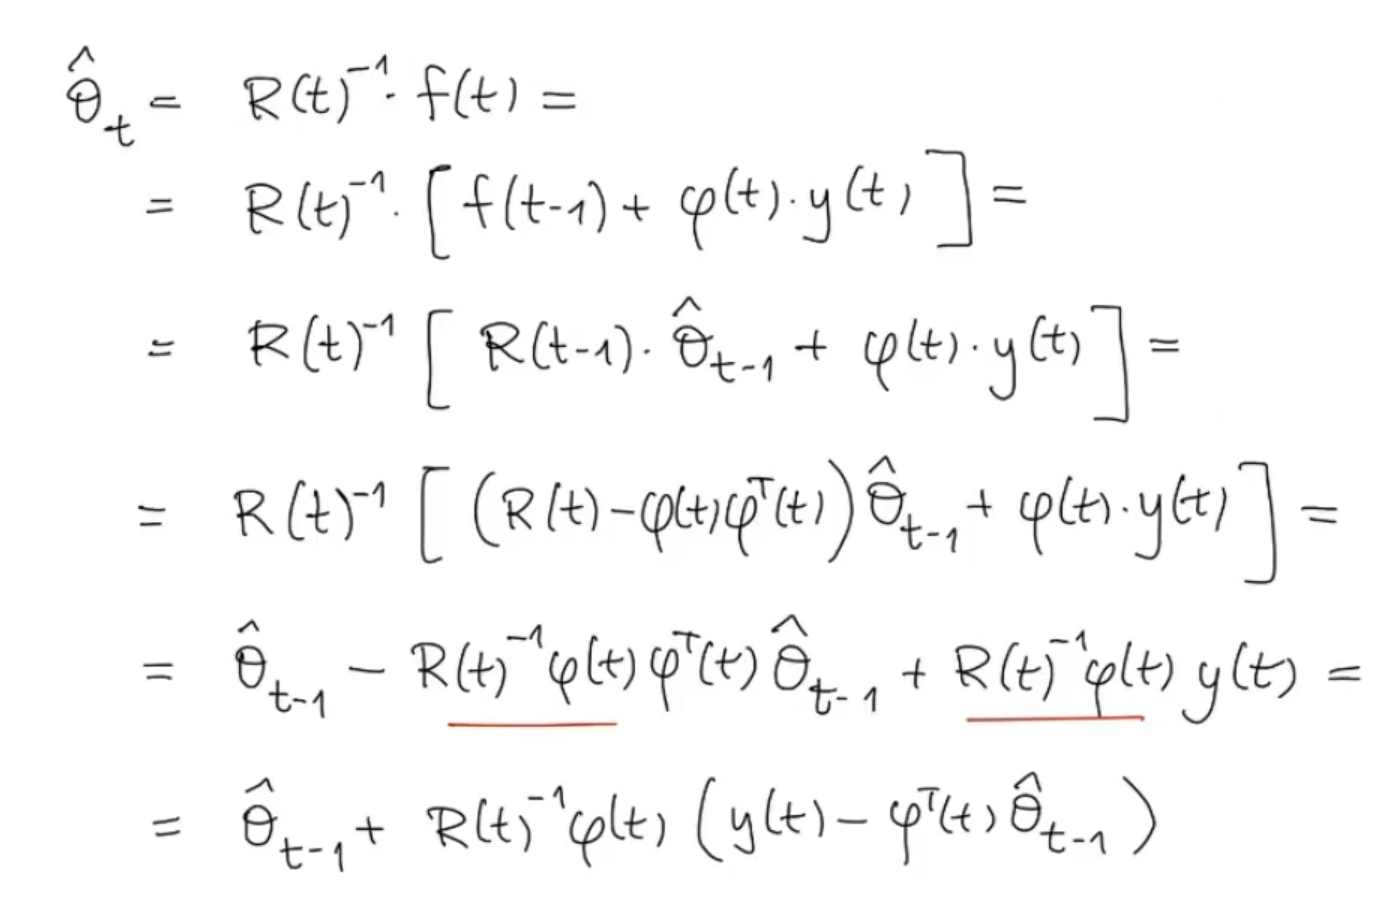 θ̂_t = R(t)⁻¹· f(t) =
= R(t)⁻¹· [ f(t-1) + φ(t)·y(t) ] =
= R(t)⁻¹ [ R(t-1)· θ̂_{t-1} + φ(t)·y(t) ] =
= R(t)⁻¹ [ (R(t) - φ(t)φᵀ(t)) θ̂_{t-1} + φ(t)·y(t) ] =
= θ̂_{t-1} - R(t)⁻¹φ(t)φᵀ(t) θ̂_{t-1} + R(t)⁻¹φ(t) y(t) =
= θ̂_{t-1} + R(t)⁻¹φ(t) ( y(t) - φᵀ(t) θ̂_{t-1} )